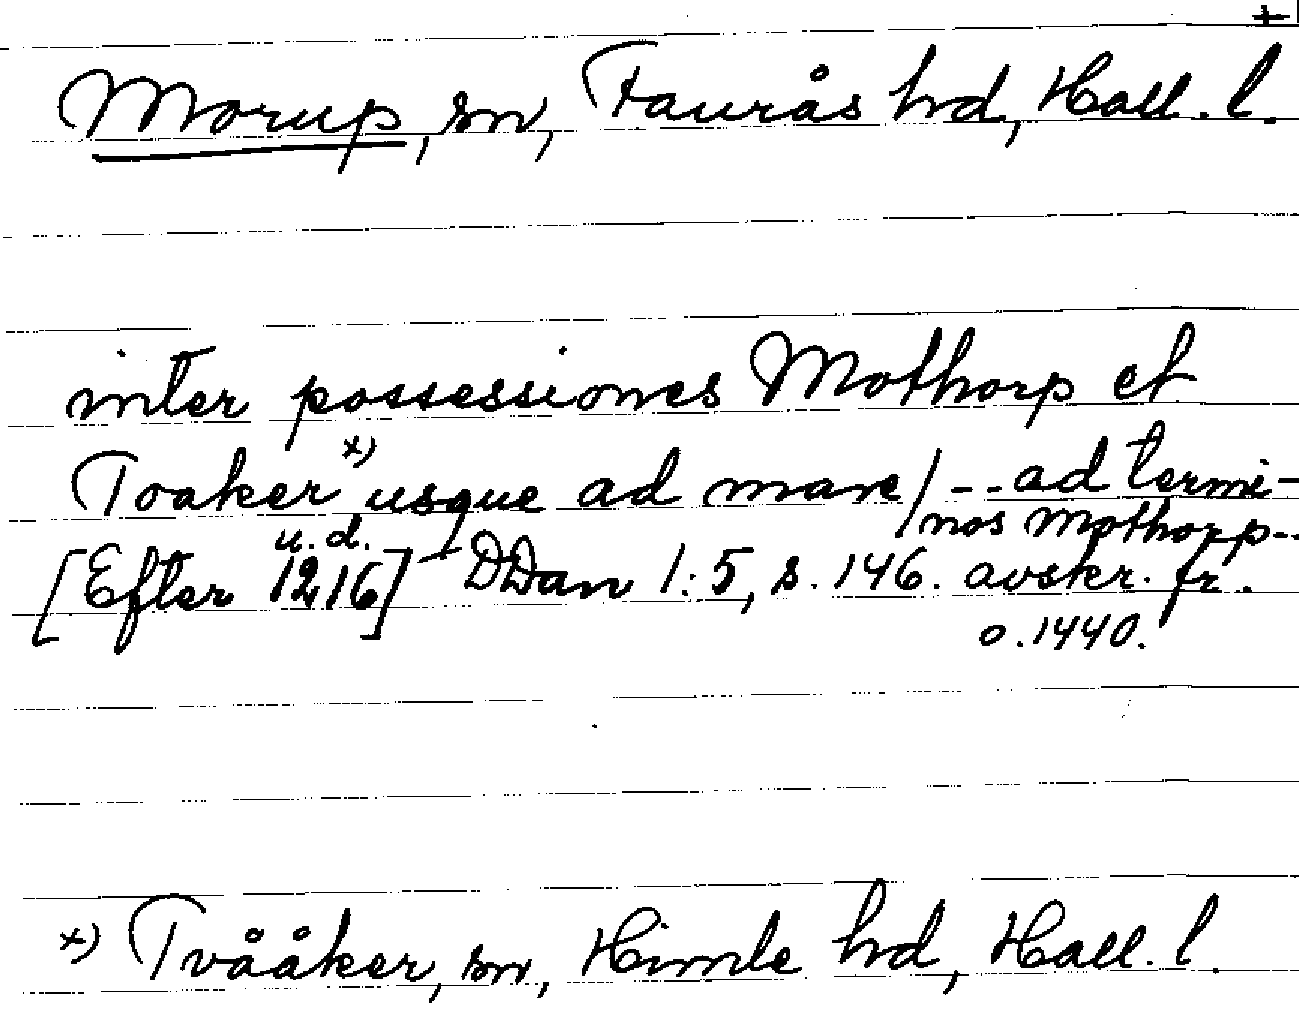 +
Morup, sn, Faurås hd, Hall. l.
inter possessiones Mothorp et
Toaker x) usque ad mare/ -- ad termi-
nos Mothorp--
u. d.
[Efter 1216] DDan 1:5, s. 146. avskr. fr.
o. 1440.
x) Tvååker, sn, Himle hd, Hall. l.